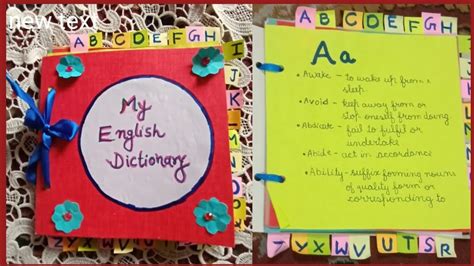 new tex
A B C D E F G H
I
J
My
English
Dictionary
W V U
A B C D E F G H
Aa
Awake - to wake up from a
sleep
Avoid - keep away from or
stop oneself from doing
Abdicate - fail to fulfil or
undertake
Abide - act in accordance
Ability - suffix forming nouns
of quality form or
corresponding to
Y X W V U T S R